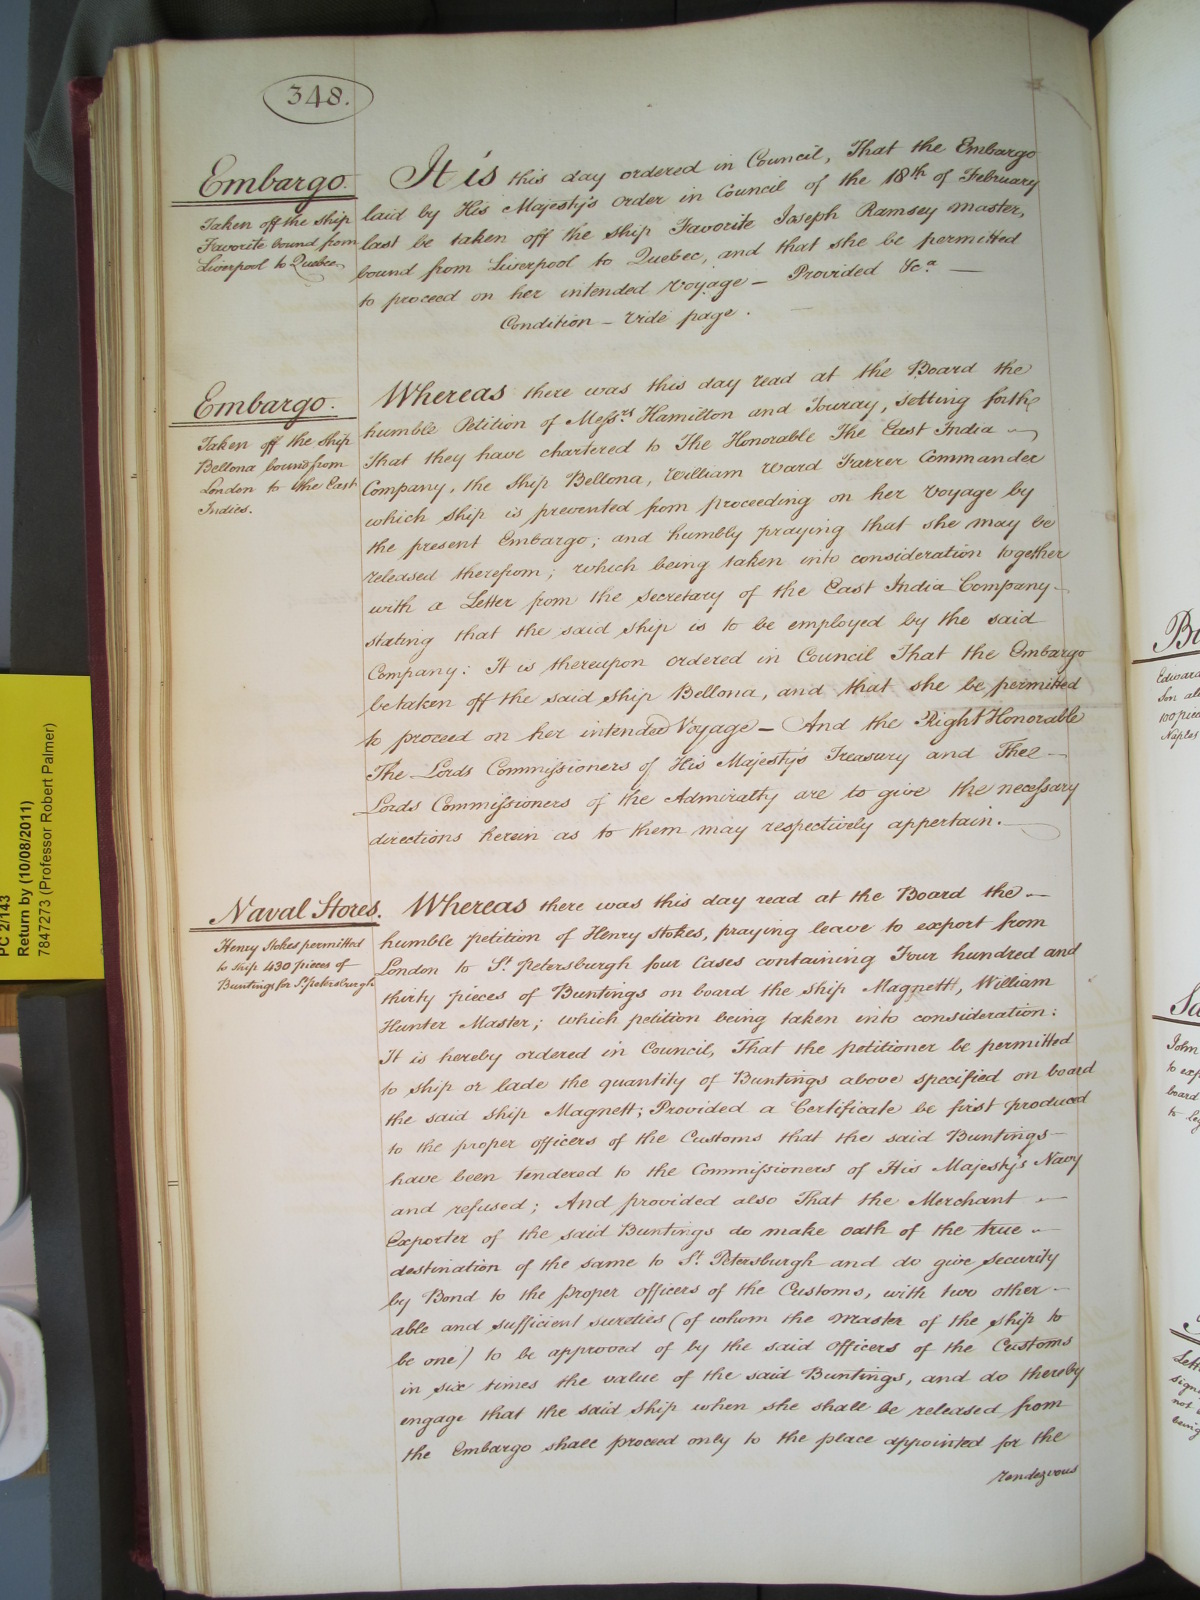 348.
Embargo.
Taken off the ship
Favorite bound from
Liverpool to Quebec
It is this day ordered in Council, That the Embargo
laid by His Majesty's Order in Council of the 18th of February
last be taken off the ship Favorite Joseph Ramsey Master,
bound from Liverpool to Quebec, and that she be permitted
to proceed on her intended Voyage — Provided &ca —
Condition — Vide page .
Embargo.
Taken off the ship
Bellona bound from
London to the East
Indies.
Whereas there was this day read at the Board the
humble Petition of Messrs Hamilton and Touray, setting forth
That they have chartered to The Honorable The East India
Company, the ship Bellona, William Ward Farrer Commander
which ship is prevented from proceeding on her Voyage by
the present Embargo; and humbly praying that she may be
released therefrom; which being taken into consideration together
with a Letter from the Secretary of the East India Company
stating that the said ship is to be employed by the said
Company: It is thereupon ordered in Council That the Embargo
be taken off the said ship Bellona, and that she be permitted
to proceed on her intended Voyage — And the Right Honorable
The Lords Commissioners of His Majesty's Treasury and The
Lords Commissioners of the Admiralty are to give the necessary
directions herein as to them may respectively appertain.
Naval Stores.
Henry Stokes permitted
to ship 430 pieces of
Buntings for St. petersburgh
Whereas there was this day read at the Board the —
humble petition of Henry Stokes, praying leave to export from
London to St. petersburgh four Cases containing Four hundred and
thirty pieces of Buntings on board the ship Magnett, William
Hunter Master; which petition being taken into consideration:
It is hereby ordered in Council, That the petitioner be permitted
to ship or lade the quantity of Buntings above specified on board
the said ship Magnett; Provided a Certificate be first produced
to the proper officers of the Customs that the said Buntings —
have been tendered to the Commissioners of His Majesty's Navy
and refused; And provided also That the Merchant —
Exporter of the said Buntings do make oath of the true —
destination of the same to St. Petersburgh and do give security
by Bond to the proper officers of the Customs, with two other —
able and sufficient sureties (of whom the Master of the ship to
be one) to be approved of by the said officers of the Customs
in six times the value of the said Buntings, and do thereby
engage that the said ship when she shall be released from
the Embargo shall proceed only to the place appointed for the
rendezvous
PC 2/143
Return by (10/08/2011)
7847273 (Professor Robert Palmer)
Bu
Edward
Son
100 piec
Naples
Sa
John
to exp
board
to
Lett
sign
not
being